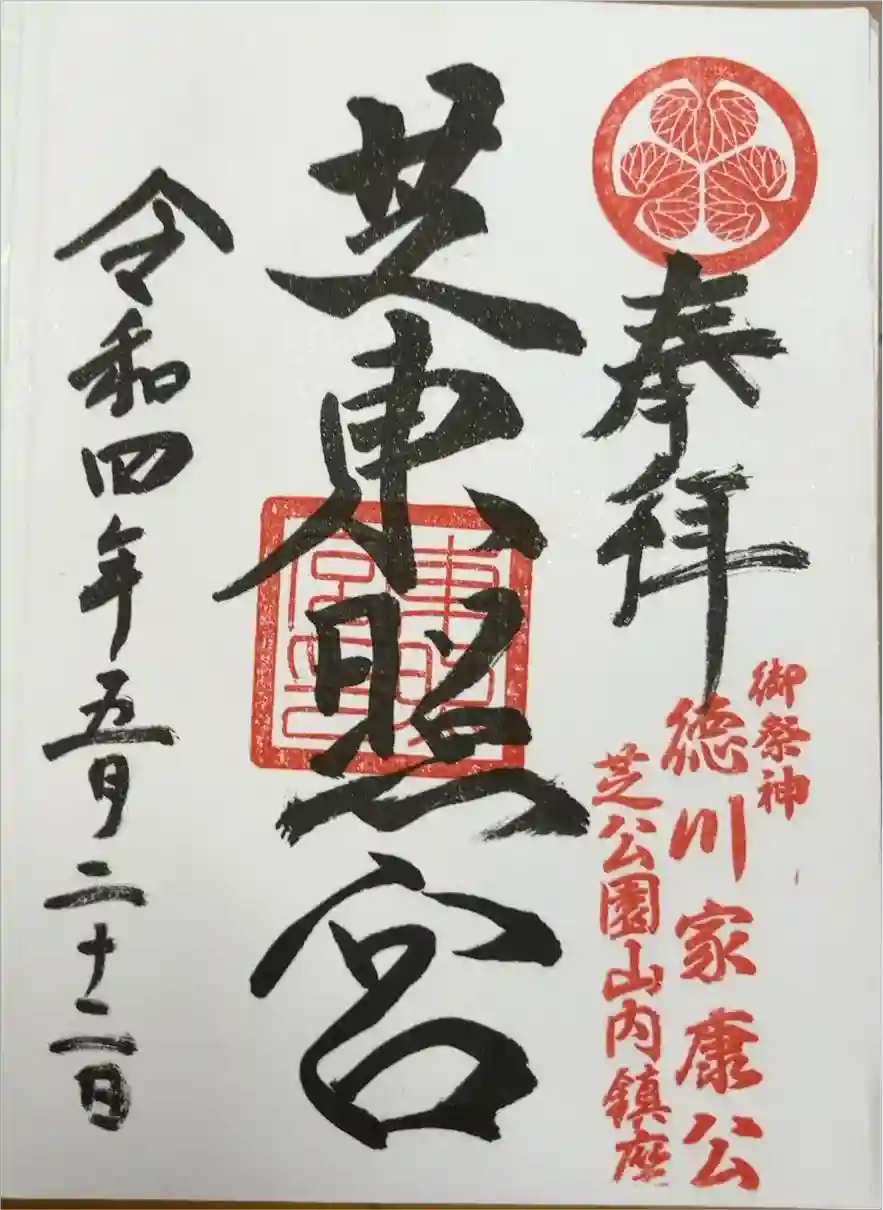 奉拝
御祭神
徳川家康公
芝公園山内鎮座
芝東照宮
東照宮
令和四年五月二十二日